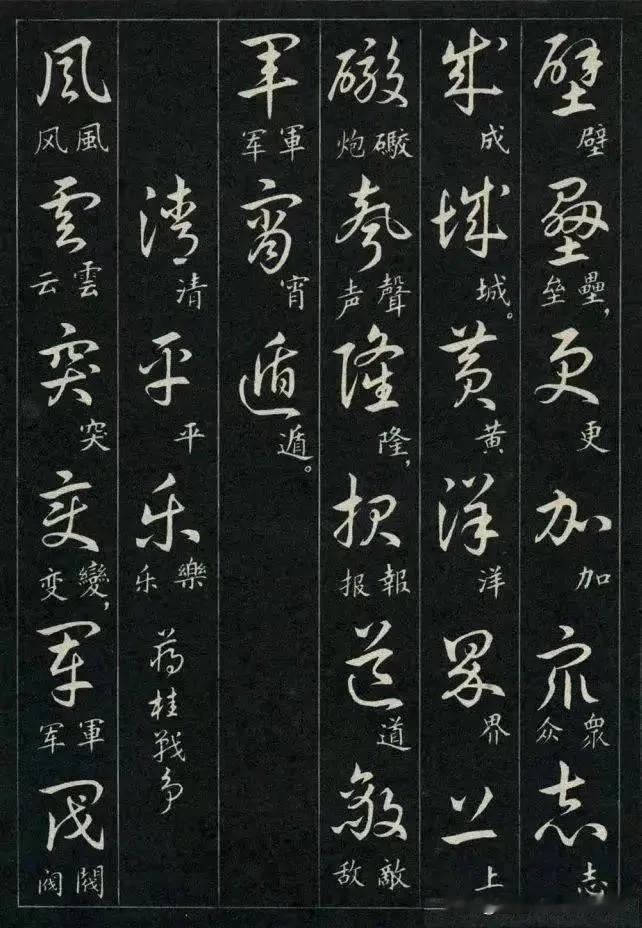 壁 壁 壘 壘,垒 更 更 加 加 眾 眾众 志 志
成 成 城 城。 黄 黄 洋 洋 界 界 上 上
礮 礮炮 聲 聲声 隆 隆, 报 報报 道 道 敵 敵敌
軍 軍军 宵 宵 遁 遁。
清 清 平 平 乐 樂乐 蒋桂戰争
風 風风 雲 雲云 突 突 变 變,变 軍 軍军 閥 閥阀